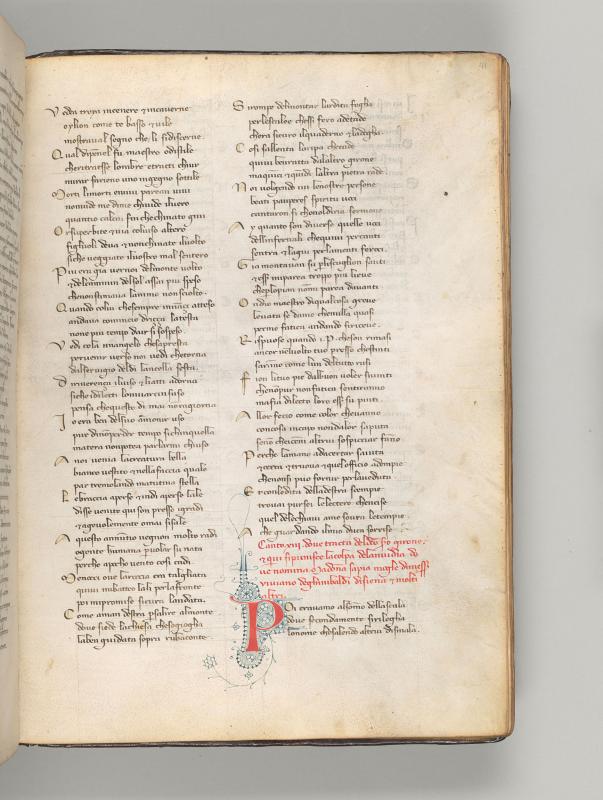 Vedea troya incenere & incauerne
oylion come te basso & uile
mostraual segno che li sidiscerne
Qual dipenel fu maestro odistile
cheritraesse lombre etratti chiui
mirar farieno uno ingegno sottile
Morti limorti eiuiui parean uiui
non uide me dime chiuide iluero
quantio calcai fin chechinato giui
Or superbite & uia coluiso altero
figliuoli deua & nonchinate iluolto
siche ueggiate iluostro mal sentero
Piu era gia pernoi delmonte uolto
& delcammin delsol assai piu speso
chenonstimaua lanimo nonsciolto
Quando colui chesempre innanci atteso
andaua comincio dricca latesta
none piu tempo dair si sospeso
Vedi cola unangelo chesapresta
peruenir uerso noi uedi chetorna
dalseruigio deldi lancella sesta
Direuerença iluiso & liatti adorna
siche idiletti loinuiarcinsuso
pensa chequesto di mai nonragiorna
Io era ben delsuo amonir uso
pur dinonperder tempo sichinquella
materia nonpotea parlarmi chiuso
Anoi uenia lacreatura bella
bianco uestito & nellafaccia quale
par tremolando matutina stella
Lebraccia aperse & indi aperse lale
disse uenite qui son presso igradi
& ageuolemente omai sisale
A questo annuntio uegnon molto radi
ogente humana p uolar su nata
perche apoco uento cosi cadi
Menocci oue laroccia era tagliata
quiui mibatteo lali perlafronte
poi mipromise sicura landata
Come aman destra p salire almonte
doue siede lachiesa chesogioga
laben guidata sopra rubaconte
Si rompe delmontar lardita foga
perlescalee chessi fero adetade
chera sicuro ilquaderno & ladoga
Cosi sallenta laripa checade
quiui benratta dalaltro girone
maquici & quindi laltra pietra rade
Noi volgendo iui lenostre persone
beati pauperes spiritu uoci
cantaron si chenoldiria sermone
Ay quanto son diuerse quelle uoci
dellinfernali chequiui percanti
sentra & lagiu perlamenti feroci
Gia montauan su p liscaglion santi
& esser miparea troppo piu lieue
cheplopian nonmi parea dauanti
Ondio maestro diqualcosa greue
leuata se dame chenulla quasi
perme fatica andando siriceue
Rispuose quando .i.P. cheson rimasi
ancor neluolto tuo presso chestinti
saranno come lun deltutto rasi
Fien lituo pie dalbuon uoler siuinti
chenopur nonfatica sentiranno
mafia dilecto loro esser su pinti
Allor fecio come color cheuanno
concosa incapo nondalor saputa
senon checenni altrui sospicciar fanno
Perche lamano adacertar saiuta
& cerca & truoua & quelofficio adempie
chenonsi puo fornir perlaueduta
Et conledita delladestra scempie
trouai pursei lelectere cheincise
quel delechiaui ame soura letempie
Ache guardando ilmio duca sorrise
Canto .xiij. doue tracta del .ij.o girone
& qui sipunisce lacolpa delainuidia. do
ue nomina Madonna sapia moglie di messer
viuiano deghinibaldi disiena & molti
altri.
Noi erauamo alsommo dellascala
doue secondamente sirilegha
lomonte chesalendo altrui dismala.